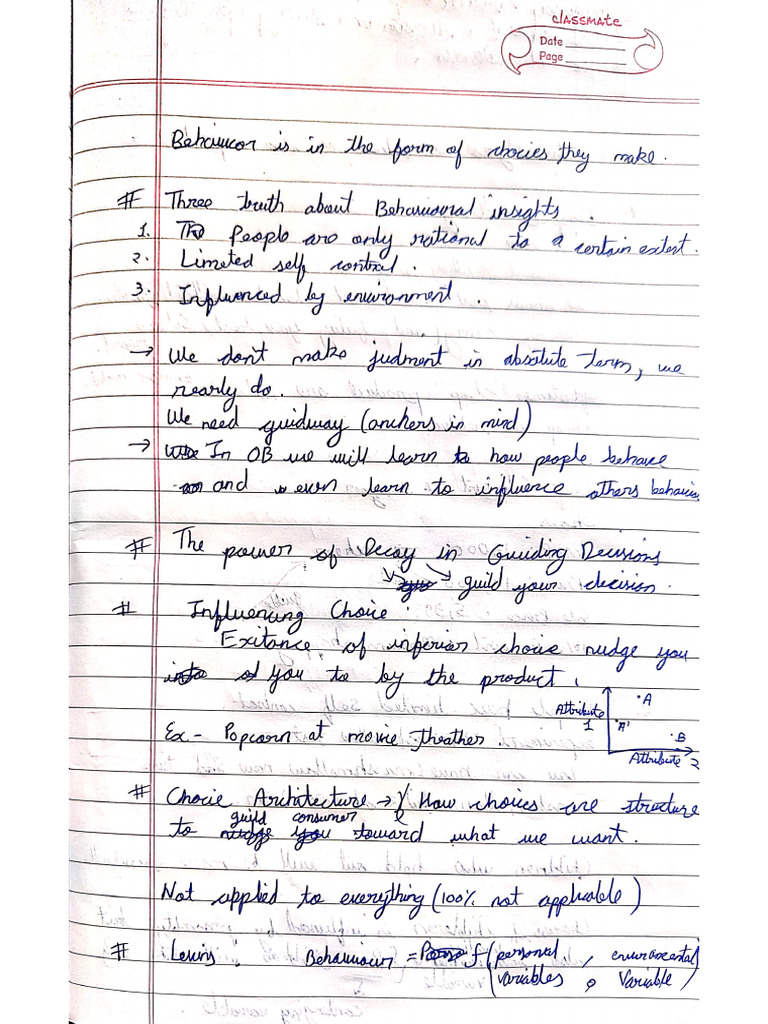 classmate
Date
Page
Behaivour is in the form of chocies they make.
# Three truth about Behavioural insights.
1. People are only rational to a certain extent.
2. Limeted self control.
3. Influenced by environment.
→ We don't make judment in absolute term, we
rearly do.
We need guidway (anchers in mind)
→ In OB we will learn to how people behave
and even learn to influence others behaviou
# The power of Decay in Guiding Decisions
guild your decision.
# Influencing Choice:
Exitance of inferior choice nudge you
you to by the product.
Attribute 1
A
A'
B
Attribute 2
Ex- Popcorn at movie theather.
# Chocie Architecture → How choices are structure
guild consumer
to toward what we want.
Not applied to everything (100% not applicable)
# Lewis. Behaviour = f (personal , enviramental
variables , Variable)